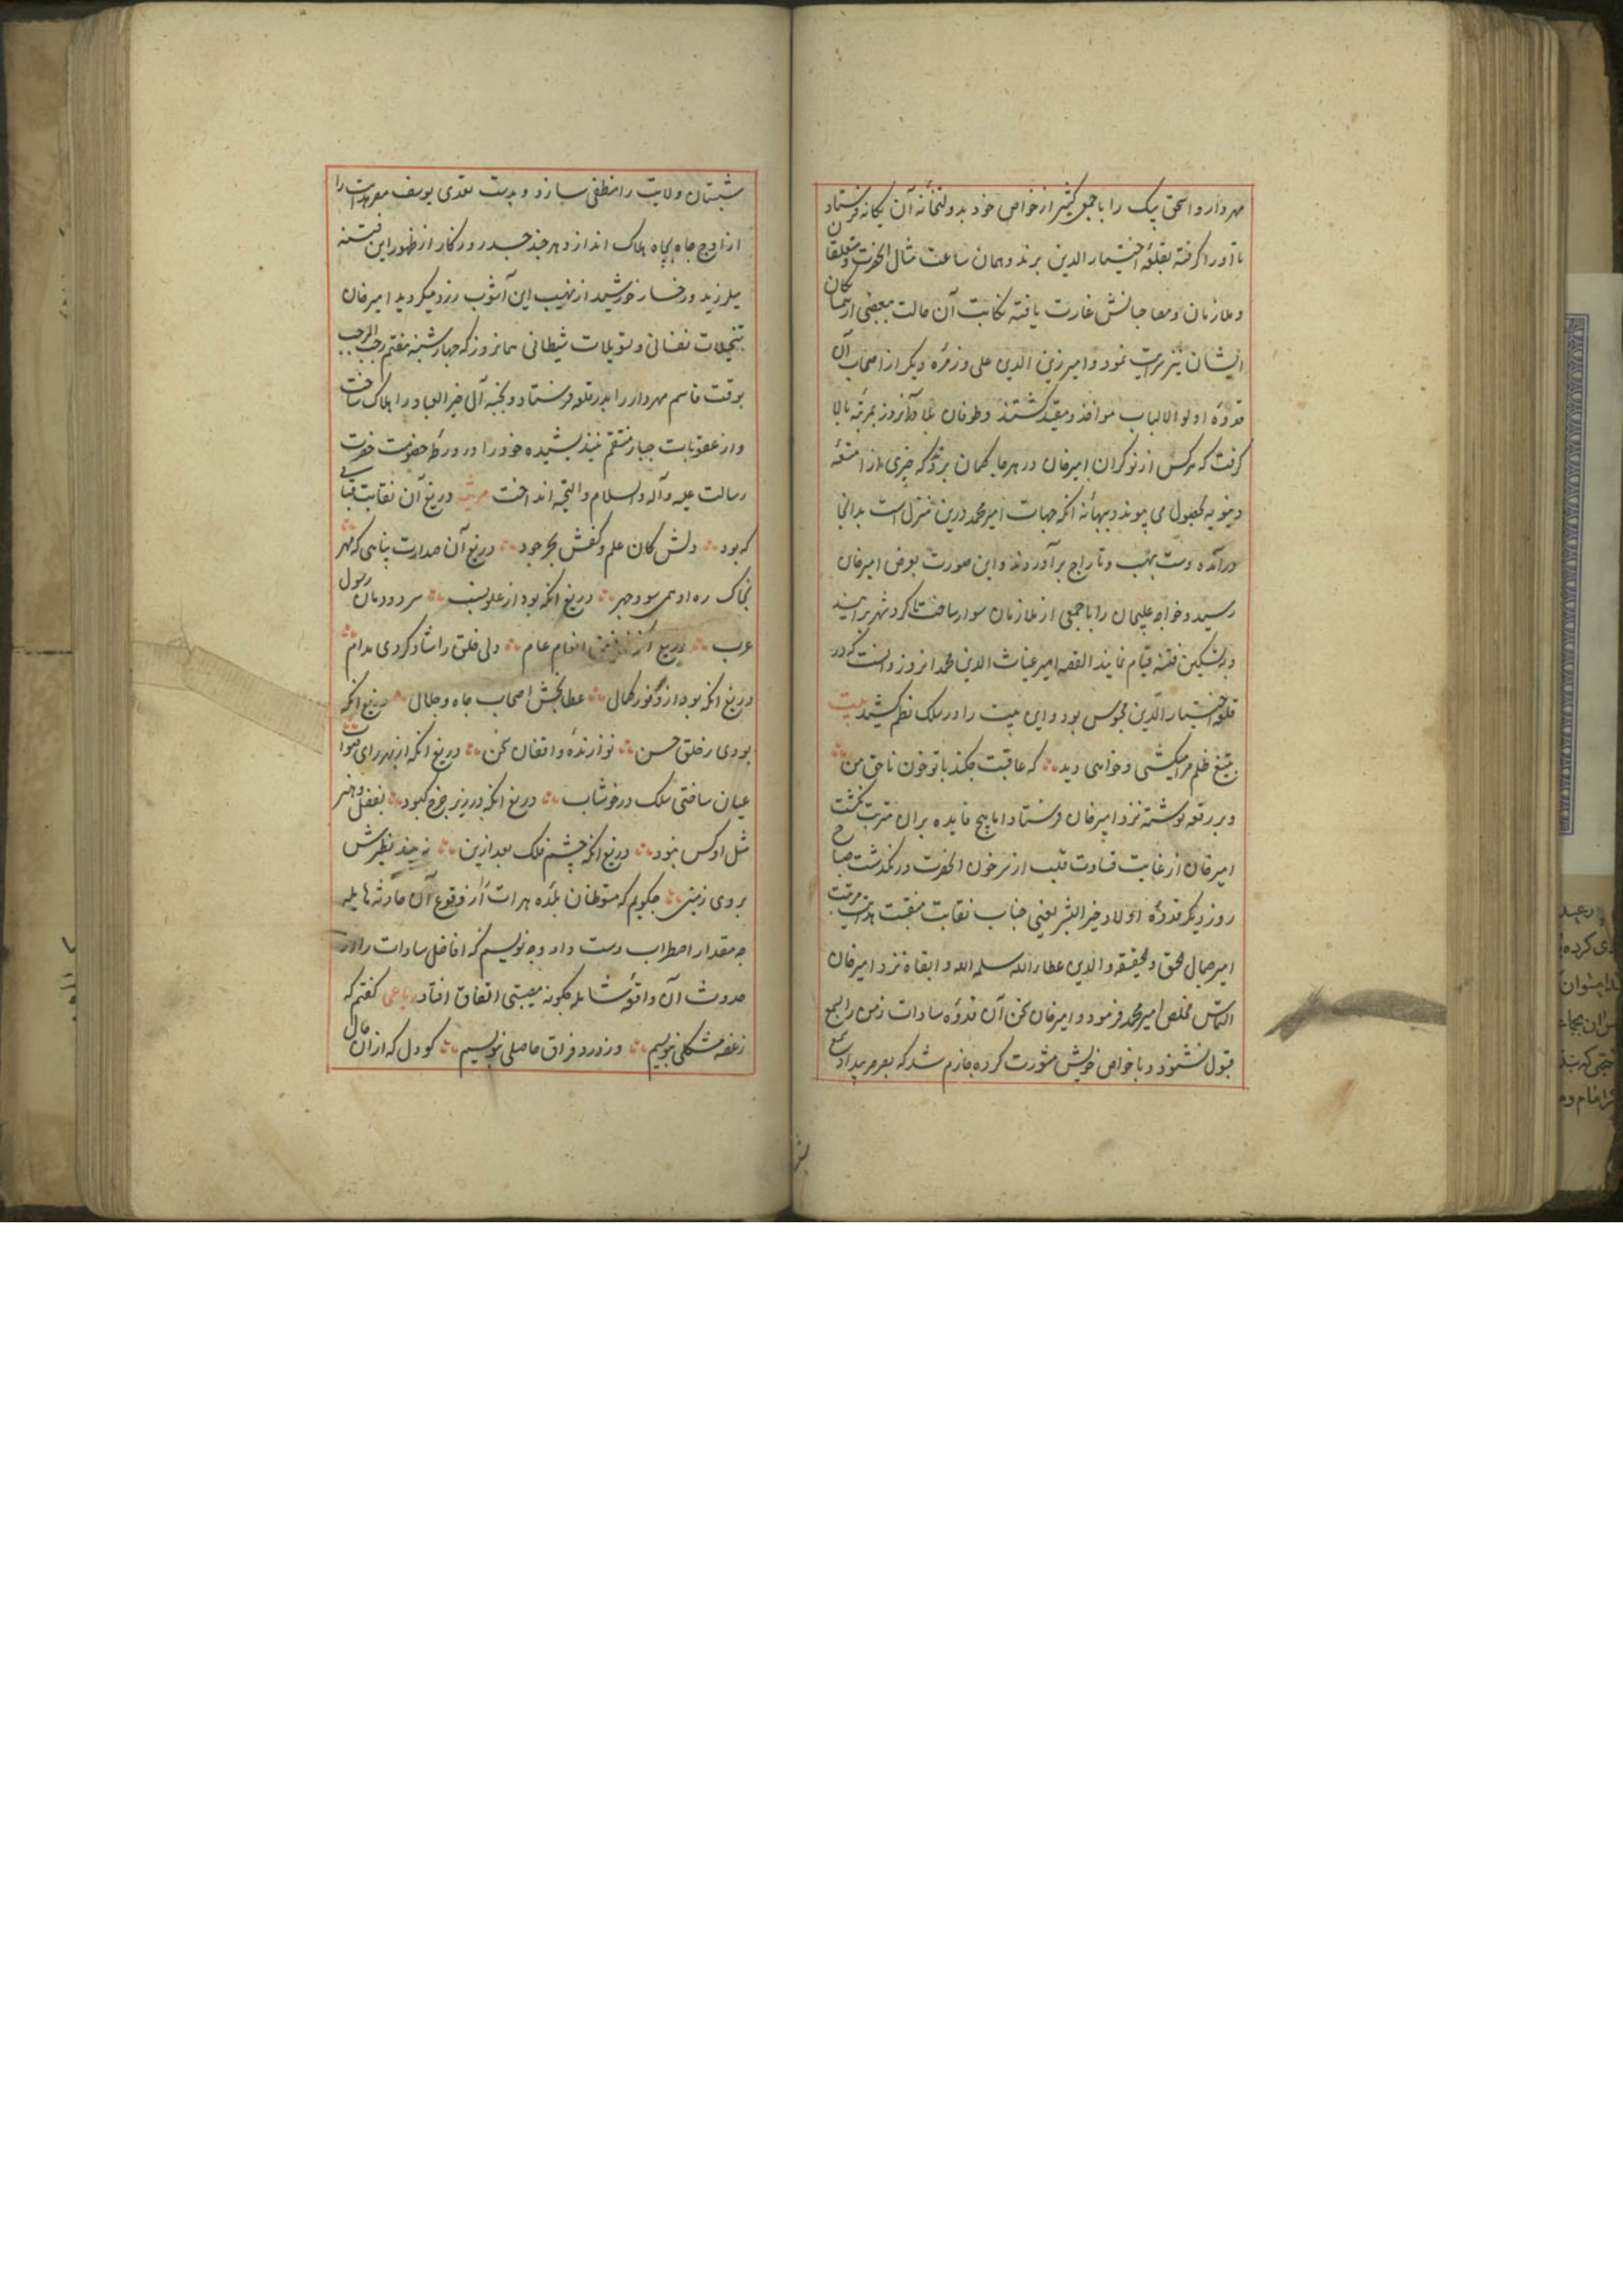 مهردار و اسحق بیک را با جمعی کثیر از خواص خود بدولتخانهٔ آن یکانه فرستاد
تا او را کرفته بقلعهٔ اختیارالدین برند و همان ساعت منال آنحضرت و متعلقان
و ملازمان و مصاحبانش غارت یافته نکایت آن حالت ببعضی از همسایکان
ایشان نیز سرایت نمود و امیر زین الدین علی و زمرهٔ دیکر از اصحاب آن
قدوهٔ اولو الالباب مواخذ و مقید کشتند و طوفان بلا در آنروز بمرتبهٔ بالا
کرفت که هرکس از نوکران امیرخان در هر جا کمان برد که چیزی از امتعهٔ
دنیویه بحصول می پیوندد ببهانهٔ آنکه جهات امیر محمد درین منزل است بدانجا
درآمده دست بنهب و تاراج برآوردند و این صورت بعرض امیرخان
رسید و خواجه را با جمعی از ملازمان سوار ساخت تا کرد شهر برآیند
و بتسکین فتنه قیام نمایند القصه امیر غیاث الدین محمد آنروز دانست که در
قلعهٔ اختیارالدین محبوس بود و این بیت را در سلک نظم کشید بیت
بتیغ ظلم مرا میکشی و خواهی دید که عاقبت چکند با تو خون ناحق من
و بر رقعه نوشته نزد امیرخان فرستاد اما هیچ فایده بران مترتب نکشت
امیرخان از غایت قساوت قلب از سر خون آنحضرت درنکذشت صباح
روز دیکر قدوهٔ اولاد خیر البشر یعنی جناب نقابت منقبت هدایت مرتبت
امیر جمال الحق والحقیقه والدین عطاءالله سلمه الله و ابقاه نزد امیرخان
التماس تخلص امیر محمد فرمود و امیرخان سخن آن قدوهٔ سادات زمن را بسمع
قبول نشنود و با خواص خویش مشورت کرده جازم شد که بصرصر بیداد شمع
شبستان ولایت را منطفی سازد و بدست تعدی یوسف مصر هدایت را
از اوج جاه بچاه هلاک اندازد هر چند جسد روزکار از ظهور این فتنه
میلرزید و رخسار خورشید از نهیب این آشوب زرد میکردید امیرخان
بتخیلات نفسانی و تسویلات شیطانی همانروز که چهارشنبه هفتم رجب المرجب
بود قاسم مهردار را بدر قلعه فرستاد و نخبهٔ آل خیر العباد را هلاک ساخت
و از عقوبات جبار منتقم نیندیشیده خود را در ورطهٔ خصومت حضرت
رسالت علیه و آله والسلام والتحیه انداخت مرثیه دریغ آن نقابت مآبی
که بود دلش کان علم و کفش بحر جود دریغ آن صدارت پناهی که مهر
بخاک ره او همی سود چهر دریغ آنکه بود از علو نسب سر دودمان رسول
عرب دریغ انعام عام دلی خلق را شاد کردی مدام
دریغ آنکه بود از وفور کمال عطابخش اصحاب جاه و جلال دریغ آنکه
بودی ز خلق حسن نوازندهٔ واقفان سخن دریغ آنکه از بهر رای صواب
عیان ساختی سلک در خوشاب دریغ آنکه در زیر چرخ کبود بفضل و هنر
مثل او کس نبود دریغ آنکه چشم فلک بعد ازین نه بیند نظیرش
بروی زمین چکویم که متوطنان بلدهٔ هرات را از وقوع آن حادثهٔ هایله
چه مقدار اضطراب دست داد و چه نویسم که افاضل سادات را از
حدوث آن واقعهٔ شامله چکونه مصیبتی اتفاق افتاد رباعی کفتم که
ز غصه مشکلی بنویسیم وز درد فراق حاصلی بنویسیم کو دل که ازان حال